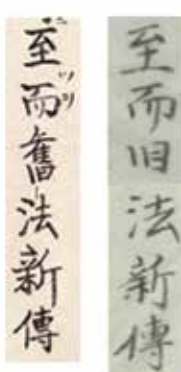 至而旧法新傳
至而舊法新傳